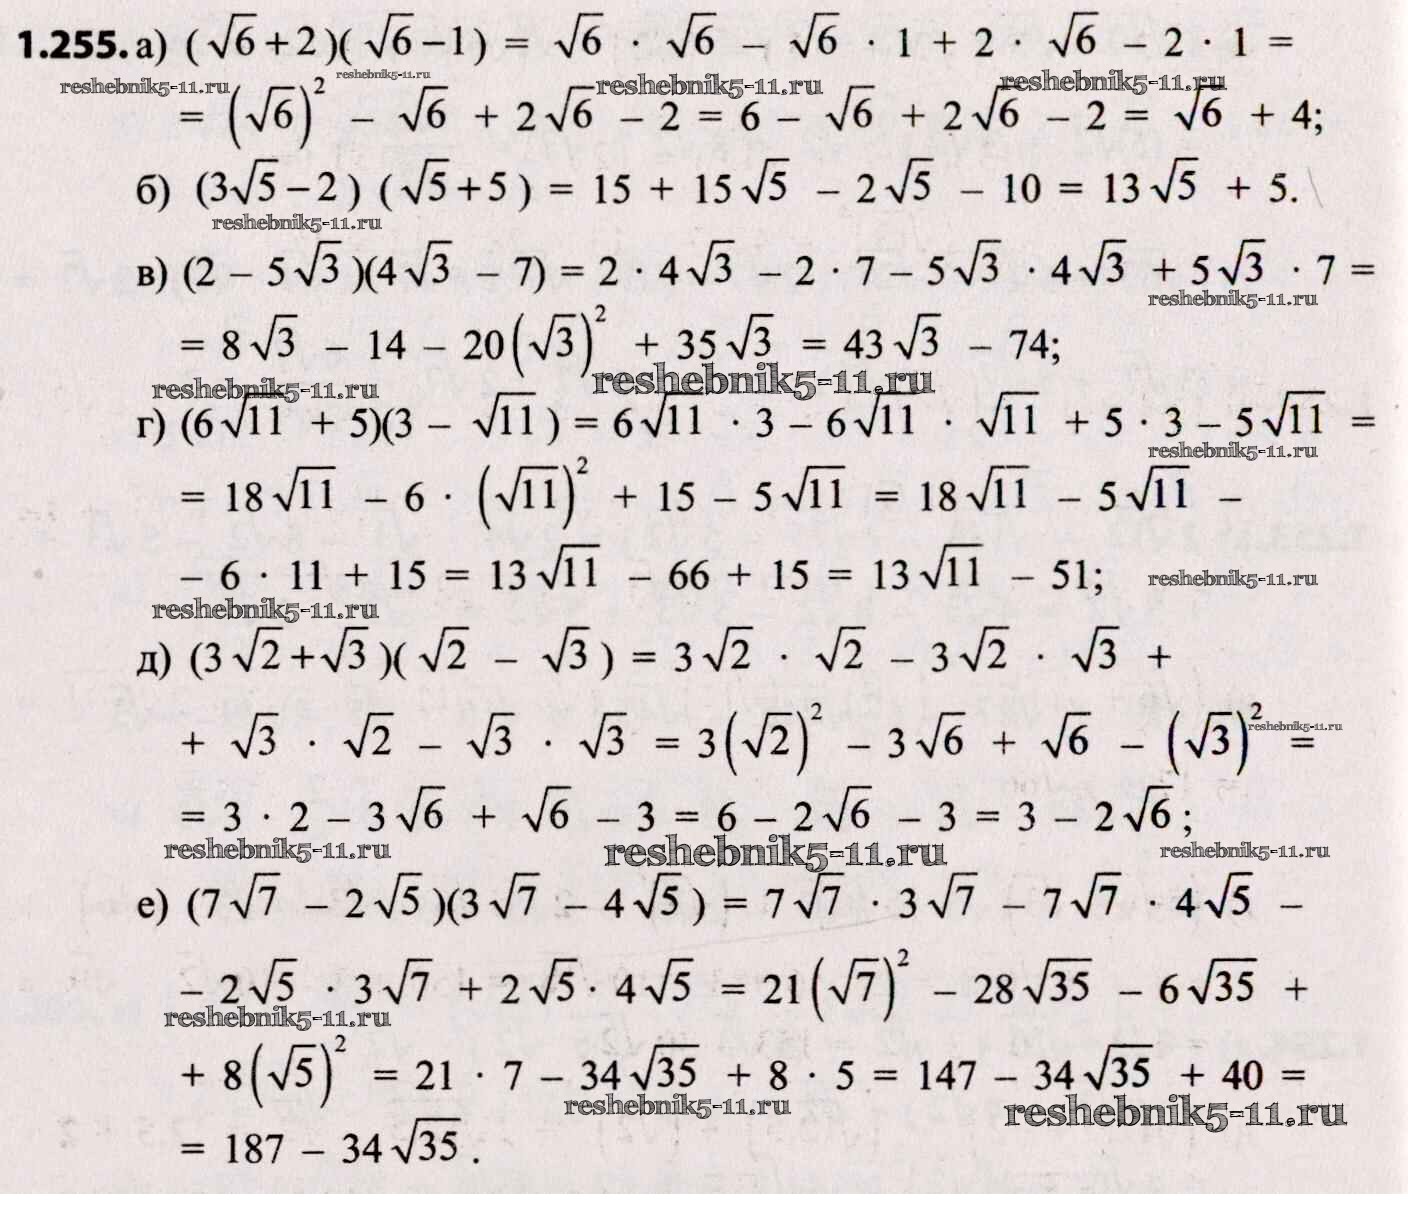 1.255. а) (√6+2)(√6−1) = √6 · √6 − √6 · 1 + 2 · √6 − 2 · 1 =
reshebnik5-11.ru reshebnik5-11.ru reshebnik5-11.ru reshebnik5-11.ru
= (√6)² − √6 + 2√6 − 2 = 6 − √6 + 2√6 − 2 = √6 + 4;
б) (3√5−2) (√5+5) = 15 + 15√5 − 2√5 − 10 = 13√5 + 5.
reshebnik5-11.ru
в) (2 − 5√3)(4√3 − 7) = 2 · 4√3 − 2 · 7 − 5√3 · 4√3 + 5√3 · 7 =
reshebnik5-11.ru
= 8√3 − 14 − 20(√3)² + 35√3 = 43√3 − 74;
reshebnik5-11.ru reshebnik5-11.ru
г) (6√11 + 5)(3 − √11) = 6√11 · 3 − 6√11 · √11 + 5 · 3 − 5√11 =
reshebnik5-11.ru
= 18√11 − 6 · (√11)² + 15 − 5√11 = 18√11 − 5√11 −
− 6 · 11 + 15 = 13√11 − 66 + 15 = 13√11 − 51; reshebnik5-11.ru
reshebnik5-11.ru
д) (3√2+√3)(√2 − √3) = 3√2 · √2 − 3√2 · √3 +
+ √3 · √2 − √3 · √3 = 3(√2)² − 3√6 + √6 − (√3)² =
reshebnik5-11.ru
= 3 · 2 − 3√6 + √6 − 3 = 6 − 2√6 − 3 = 3 − 2√6;
reshebnik5-11.ru reshebnik5-11.ru reshebnik5-11.ru
е) (7√7 − 2√5)(3√7 − 4√5) = 7√7 · 3√7 − 7√7 · 4√5 −
− 2√5 · 3√7 + 2√5 · 4√5 = 21(√7)² − 28√35 − 6√35 +
reshebnik5-11.ru
+ 8(√5)² = 21 · 7 − 34√35 + 8 · 5 = 147 − 34√35 + 40 =
reshebnik5-11.ru reshebnik5-11.ru
= 187 − 34√35.